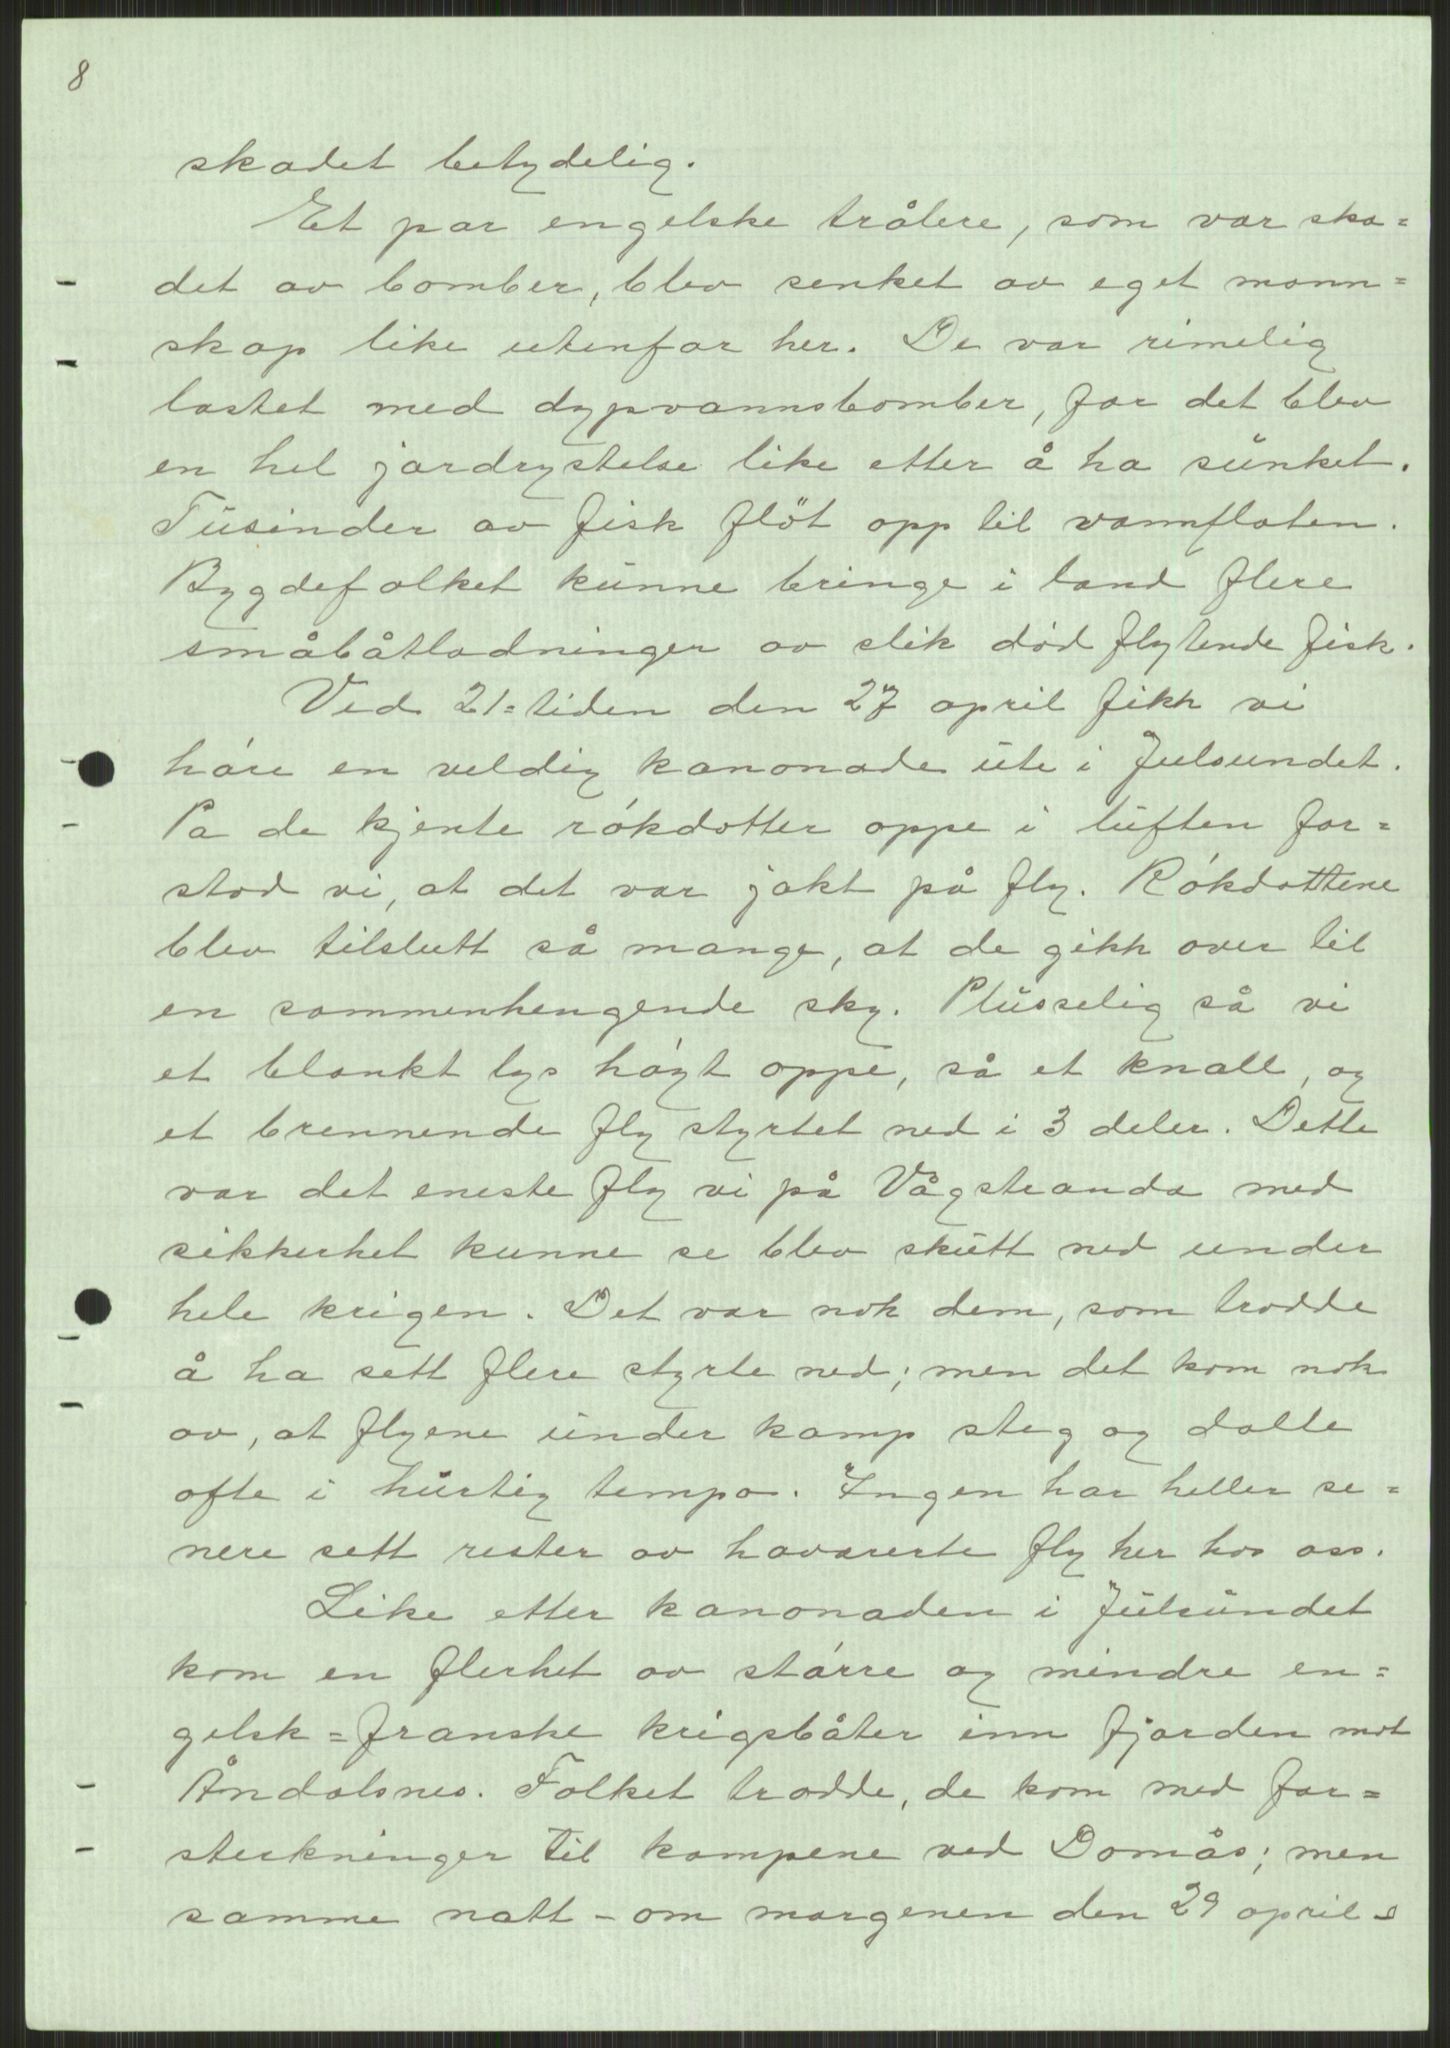 8
skadet betydelig.
Et par engelske trålere, som var ska=
det av bomber, blev senket av eget mann=
skap like utenfor her. De var rimelig
lastet med dypvannsbomber, for det blev
en hel jordrystelse like etter å ha sunket.
Tusinder av fisk flöt opp til vannflaten.
Bygdefolket kunne bringe i land flere
småbåtladninger av slik död flytende fisk.
Ved 21=tiden den 27 april fikk vi
hóre en veldig kanonade ute i Julsundet.
Pa de kjente rókdotter oppe i luften for=
stod vi, at det var jakt på fly. Rókdottene
blev tilslutt så mange, at de gikk over til
en sammenhengende sky. Plusselig så vi
et blankt lys hóyt oppe, så et knall, og
et brennende fly styrtet ned i 3 deler. Dette
var det eneste fly vi på Vågstranda med
sikkerhet kunne se blev skutt ned under
hele krigen. Det var nok dem, som trodde
å ha sett flere styrte ned; men det kom nok
av, at flyene under kamp steg og dalte
ofte i hurtig tempo. Ingen har heller se=
nere sett rester av havarerte fly her hos oss.
Like etter kanonaden i Julsundet
kom en flerhet av stórre og mindre en=
gelsk=franske krigsbåter inn fjorden mot
Åndalsnes. Folket trodde, de kom med for=
sterkninger til kampene ved Domås; men
samme natt - om morgenen den 29 april -